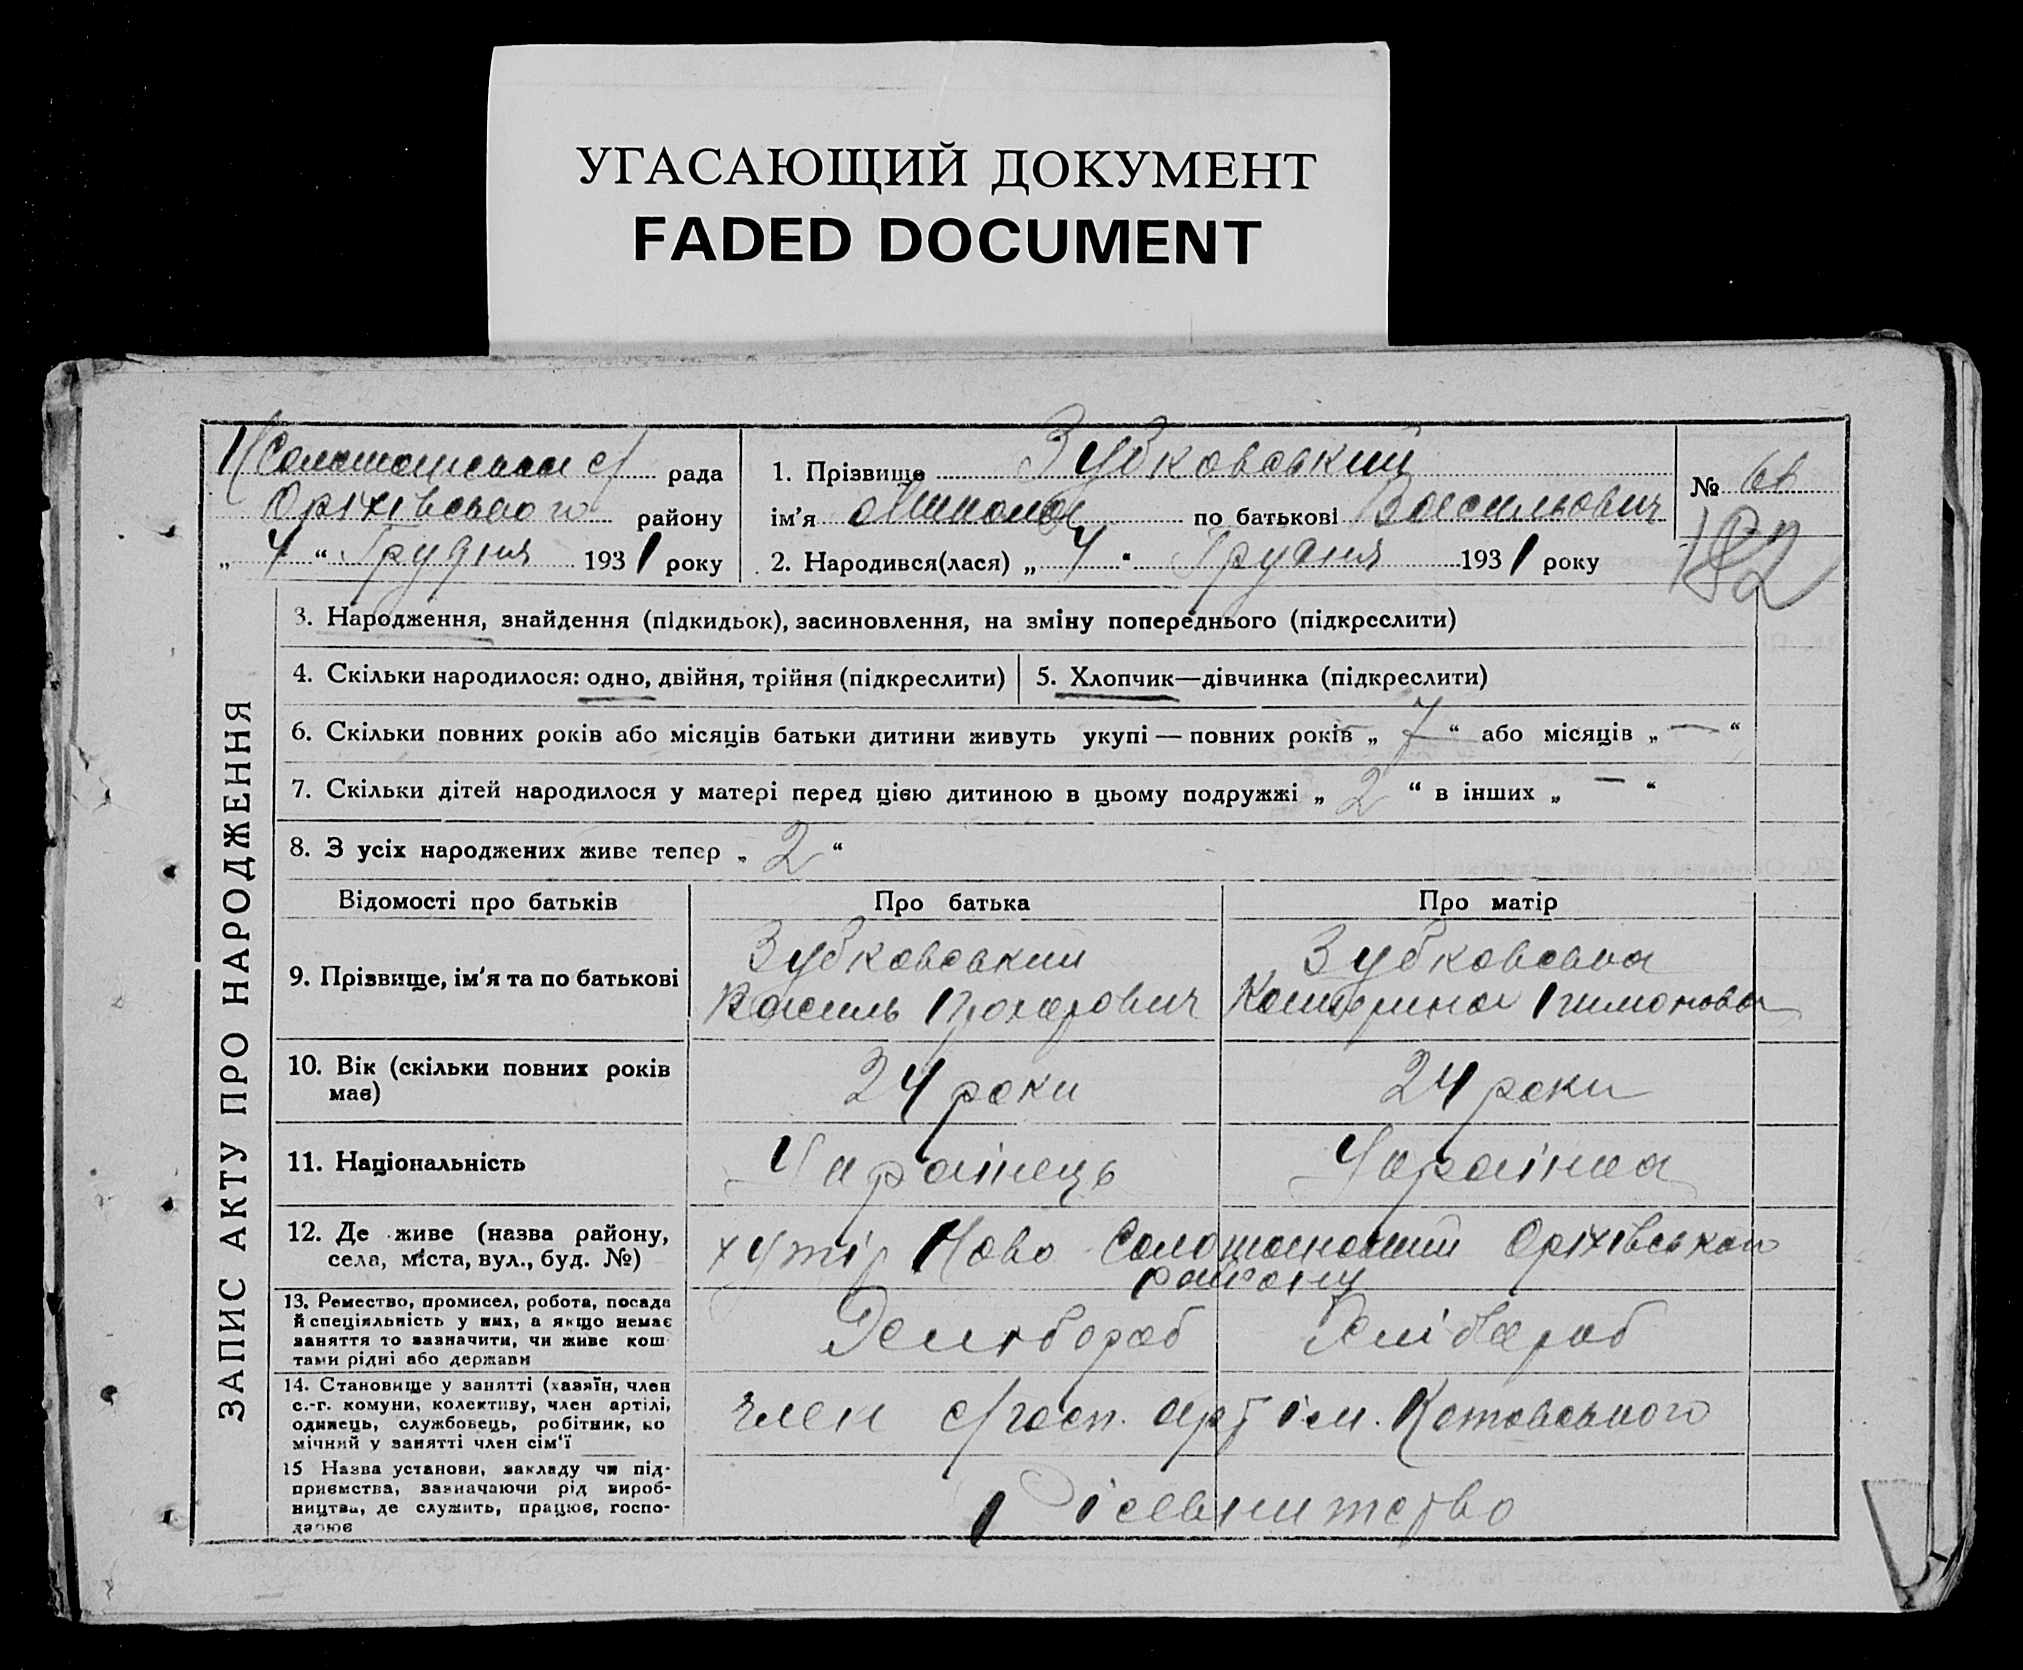 УГАСАЮЩИЙ ДОКУМЕНТ
FADED DOCUMENT
рада
Оріхівського району
„ 4 “ Грудня 1931 року
1. Прізвище Зубковський
ім'я по батькові Васильович
2. Народився(лася) „ 4 “ Грудня 1931 року
№ 66
182
ЗАПИС АКТУ ПРО НАРОДЖЕННЯ
3. Народження, знайдення (підкидьок), засиновлення, на зміну попереднього (підкреслити)
4. Скільки народилося: одно, двійня, трійня (підкреслити)
5. Хлопчик—дівчинка (підкреслити)
6. Скільки повних років або місяців батьки дитини живуть укупі — повних років „ 7 “ або місяців „ — “
7. Скільки дітей народилося у матері перед цією дитиною в цьому подружжі „ 2 “ в інших „ — “
8. З усіх народжених живе тепер „ 2 “
Відомості про батьків
Про батька
Про матір
9. Прізвище, ім'я та по батькові
Зубковський
Василь Прохорович
Зубковська
Катерина Пимонова
10. Вік (скільки повних років
має)
24 роки
24 роки
11. Національність
Українець
Українка
12. Де живе (назва району,
села, міста, вул., буд. №)
хутір Ново Оріхівського
району
13. Ремество, промисел, робота, посада
й спеціяльність у них, а якщо немає
заняття то зазначити, чи живе кош-
тами рідні або держави
Хлібороб
Хлібороб
14. Становище у занятті (хазяїн, член
с.-г. комуни, колективу, член артілі,
одинець, службовець, робітник, по
мічний у занятті член сім'ї
член с/госп. арт ім. Котовського
15 Назва установи, закладу чи під-
приємства, зазначаючи рід вироб-
ництва, де служить, працює, госпо-
дарює
Рілевництво